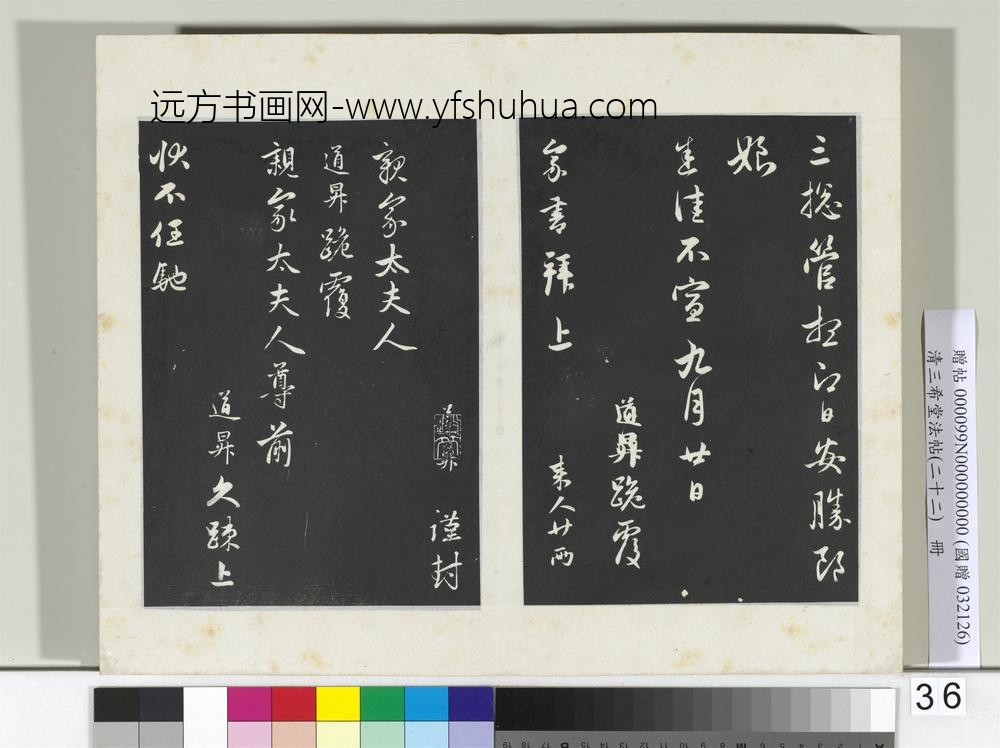 远方书画网-www.yfshuhua.com
三總管想即日安勝郎
娘
悉佳不宣九月廿日
道昇跪覆
来人廿兩
家書拜上
道昇 謹封
親家太夫人
道昇跪覆
親家太夫人尊前
道昇久疎上
狀不任馳
贈帖 000099N000000000 (國贈 032126)
清三希堂法帖(二十二) 冊
36